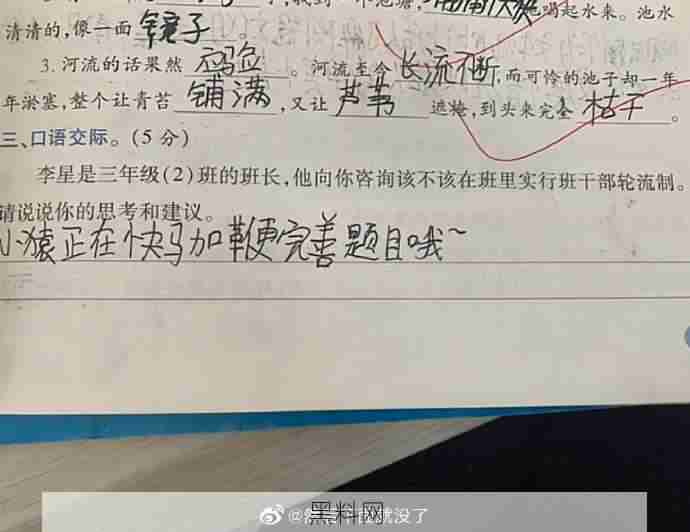 喝起水来。池水
清清的,像一面 镜子 。
3. 河流的话果然 应验 。河流至今 长流不断,而可怜的池子却一年
年淤塞,整个让青苔 铺满 ,又让 芦苇 遮掩,到头来完全 枯干 。
三、口语交际。(5 分)
李星是三年级(2)班的班长,他向你咨询该不该在班里实行班干部轮流制。
请说说你的思考和建议。
小猿正在快马加鞭完善题目哦~
黑料网